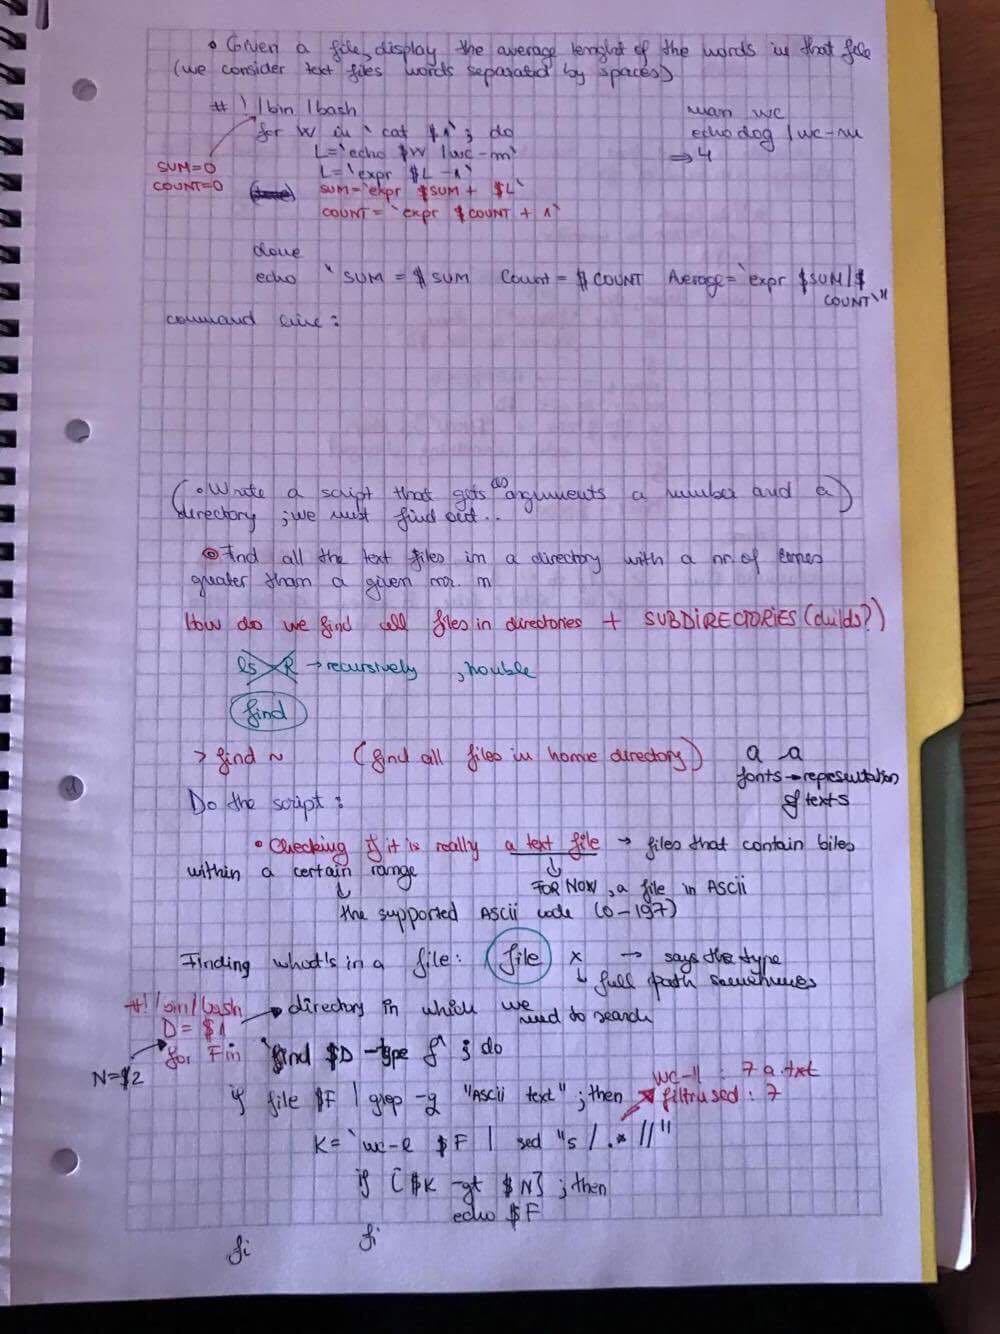 • Given a file, display the average lenght of the words in that file
(we consider text files words separated by spaces)
#!/bin/bash
for W in `cat $1`; do
L=`echo $W | wc-m`
L=`expr $L -1`
SUM=0
COUNT=0
SUM=`expr $SUM + $L`
COUNT=`expr $COUNT + 1`
man wc
echo dog | wc-m
⇒ 4
done
echo "SUM = $SUM Count = $COUNT Average=`expr $SUM/$
COUNT`"
command line:
(• Write a script that gets (as) arguments a number and a)
directory ; we must find out..
Find all the text files in a directory with a nr. of lines
greater than a given nr. n
How do we find all files in directories + SUBDIRECTORIES (childs?)
ls -R → recursively , trouble
find
> find ~ (find all files in home directory)
a a
fonts → representation
of texts
Do the script:
• Checking if it is really a text file → files that contain bites
within a certain range
FOR NOW, a file in Ascii
the supported ASCII code (0-197)
Finding what's in a file: file x → says the type
↓ full path
#!/bin/bash
D=$1 → directory in which we
need to search
N=$2
for F in `find $D -type f` ; do
if file $F | grep -q "Ascii text" ; then
wc-l : 7 a.txt
sed : 7
K=`wc-l $F | sed "s/.*//"
if [$K -gt $N] ; then
echo $F
fi
fi